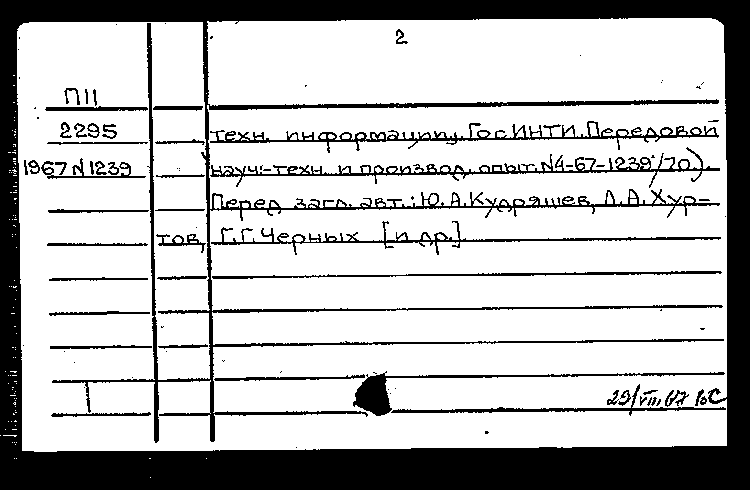 2
П11
2295 техн. информации. ГосИНТИ. Передовой
1967 N 1239 науч.-техн. и производ. опыт. N4-67-1239/70).
Перед загл. авт.: Ю. А. Кудряшев, Л. А. Хур=
тов, Г. Г. Черных [и др.].
29/VIII 67